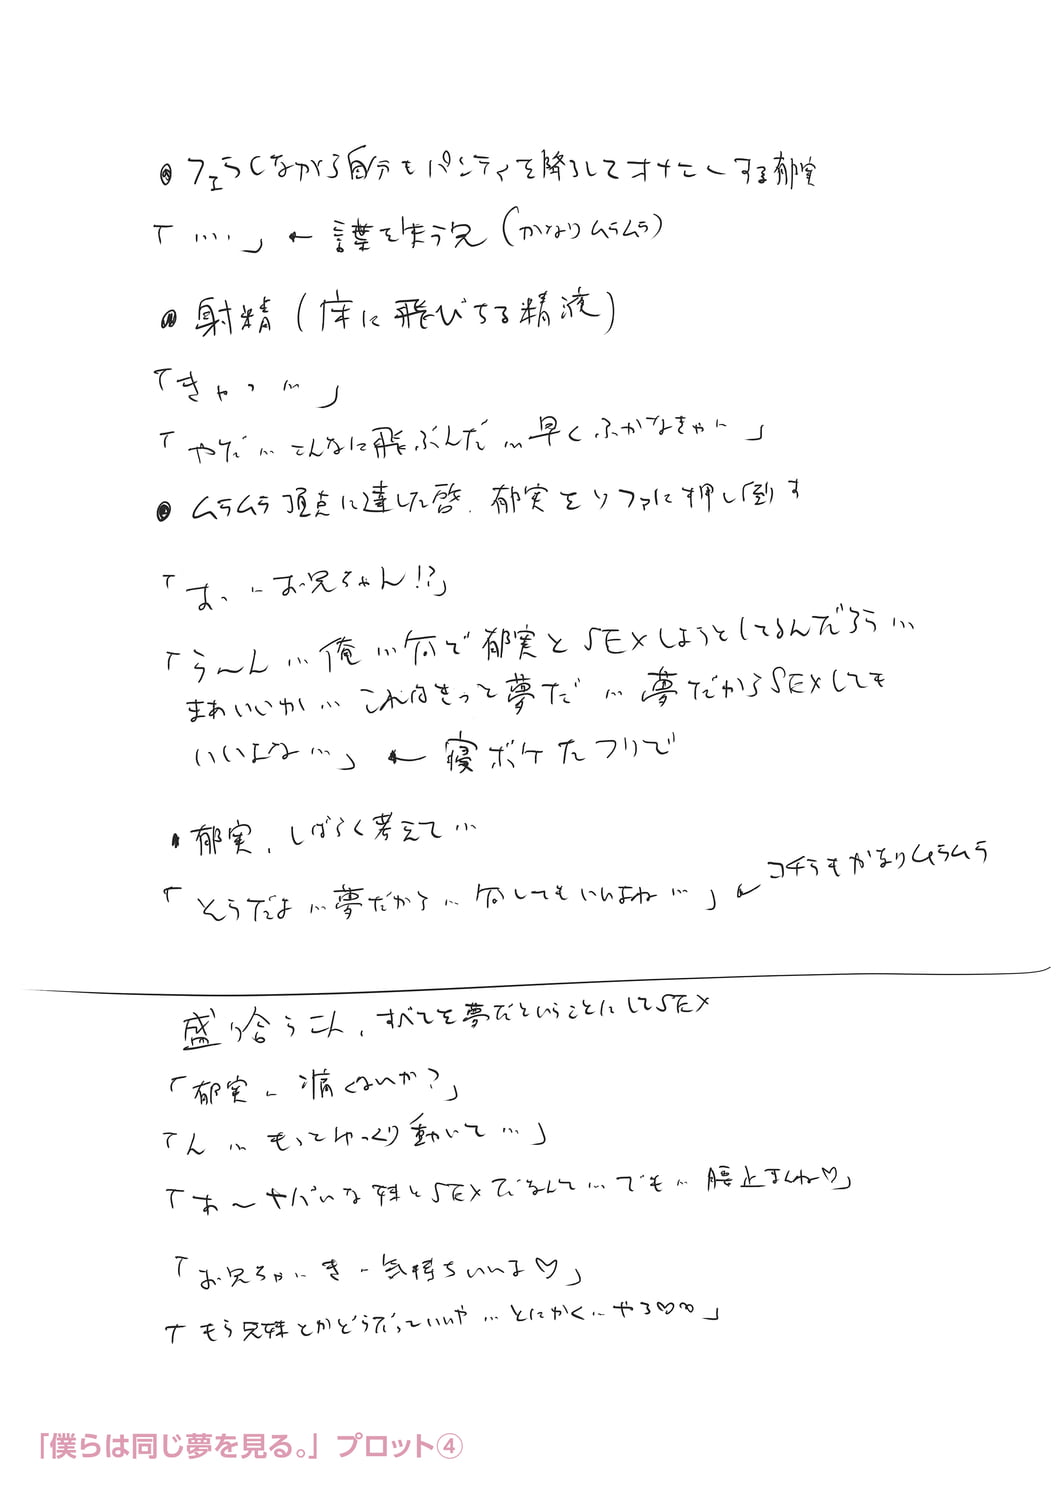 ● フェラしながら自分もパンティを降ろしてオナニーする郁実
「……」← 言葉を失う兄(かなりムラムラ)
● 射精(床に飛びちる精液)
「きゃっ…」
「やだ…こんなに飛ぶんだ…早くふかなきゃ…」
● ムラムラ頂点に達した啓、郁実をソファに押し倒す
「おっ…お兄ちゃん!?」
「う〜ん…俺…何で郁実とSEXしようとしてるんだろう…
まあいいか…これはきっと夢だ…夢だからSEXしても
いいよな…」← 寝ボケたフリで
● 郁実、しばらく考えて…
「そうだよ…夢だから…何してもいいよね…」← コチラもかなりムラムラ
盛り合う二人、すべてを夢だということにしてSEX
「郁実…痛くないか?」
「ん…もってゆっくり動いて…」
「あ〜ヤバいな 妹とSEXだなんて…でも…腰止まんね♡」
「お兄ちゃ…き…気持ちいいよ♡」
「もう兄妹とかどうだっていいや…とにかく…やる♡♡」
「僕らは同じ夢を見る。」プロット④